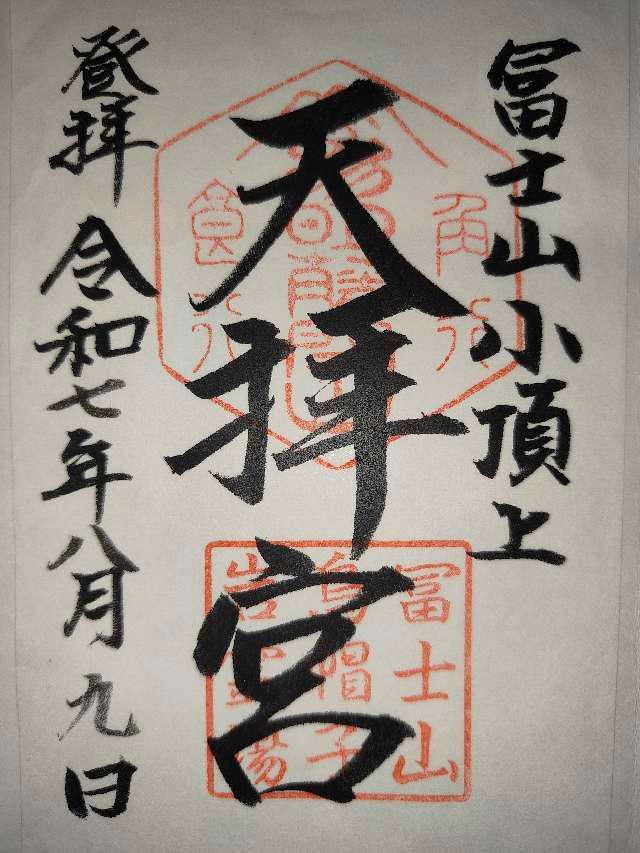 冨士山小頂上
天拝宮
登拝 令和七年八月九日
角行
食行
冨士山
烏帽子